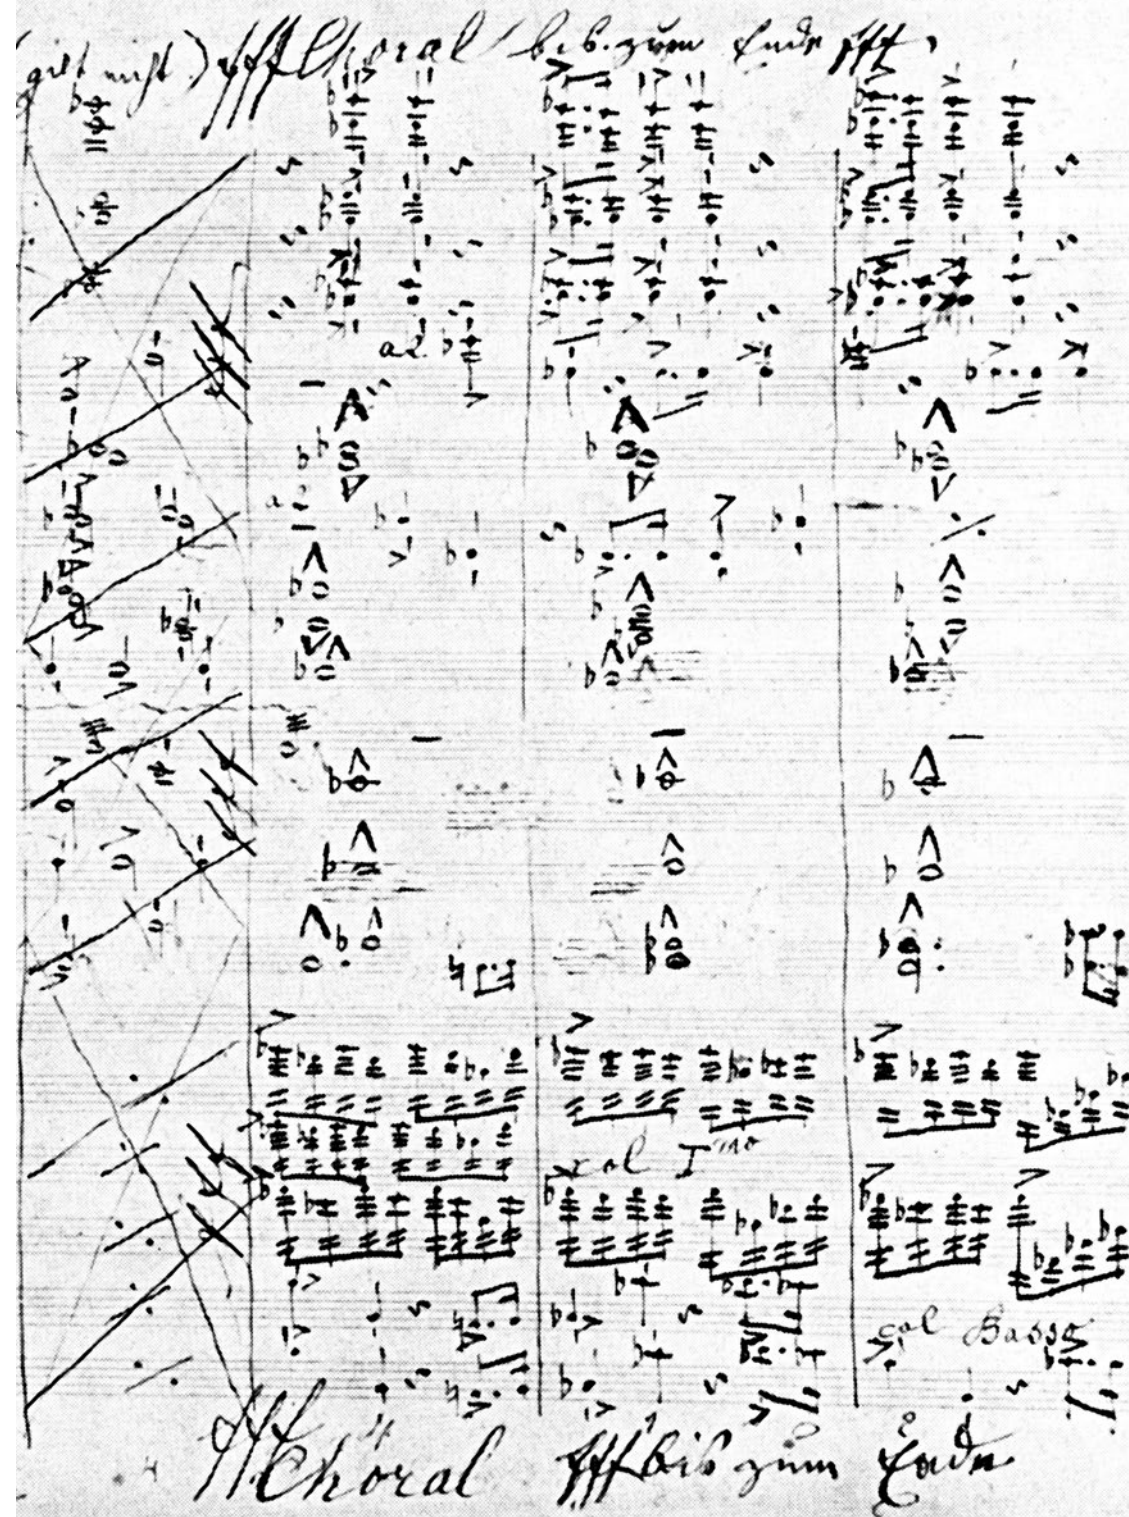 (gilt nicht) fff Choral bis zum Ende fff.
a2.
a2
col Imo
col Basso
fff Choral fff bis zum Ende